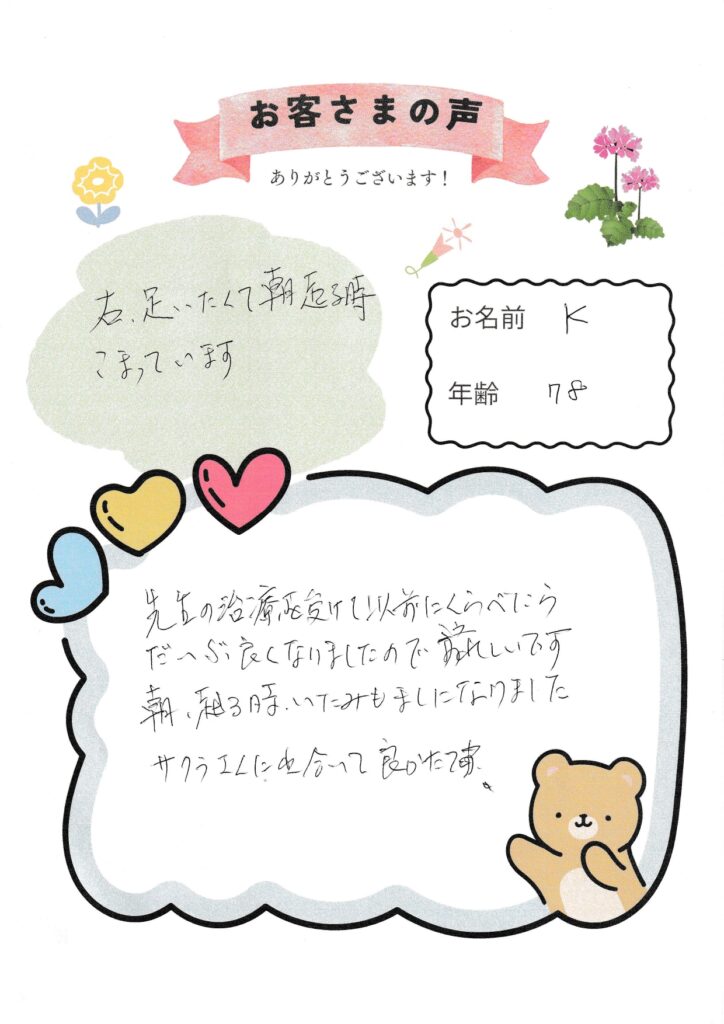 お客さまの声
ありがとうございます！
右、足いたくて朝起る時
こまっています
お名前 K
年齢 78
先生の治療を受けて以前にくらべたら
だいぶ良くなりましたので嬉しいです
朝、起る時、いたみもましになりました
サクラさんに出合って良かた